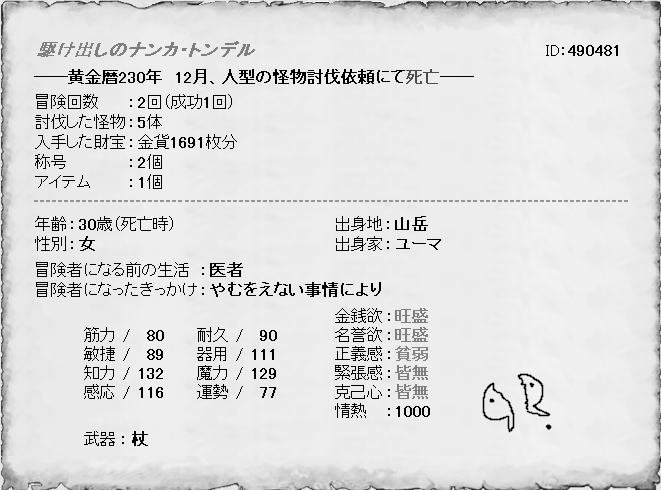 駆け出しのナンカ・トンデル ID：490481
――黄金暦230年 12月、人型の怪物討伐依頼にて死亡――
冒険回数 ：2回（成功1回）
討伐した怪物：5体
入手した財宝：金貨1691枚分
称号 ：2個
アイテム ：1個
年齢：30歳（死亡時） 出身地：山岳
性別：女 出身家：ユーマ
冒険者になる前の生活 ：医者
冒険者になったきっかけ：やむをえない事情により
金銭欲：旺盛
筋力 / 80 耐久 / 90 名誉欲：旺盛
敏捷 / 89 器用 / 111 正義感：貧弱
知力 / 132 魔力 / 129 緊張感：皆無
感応 / 116 運勢 / 77 克己心：皆無
情熱 ：1000
武器：杖